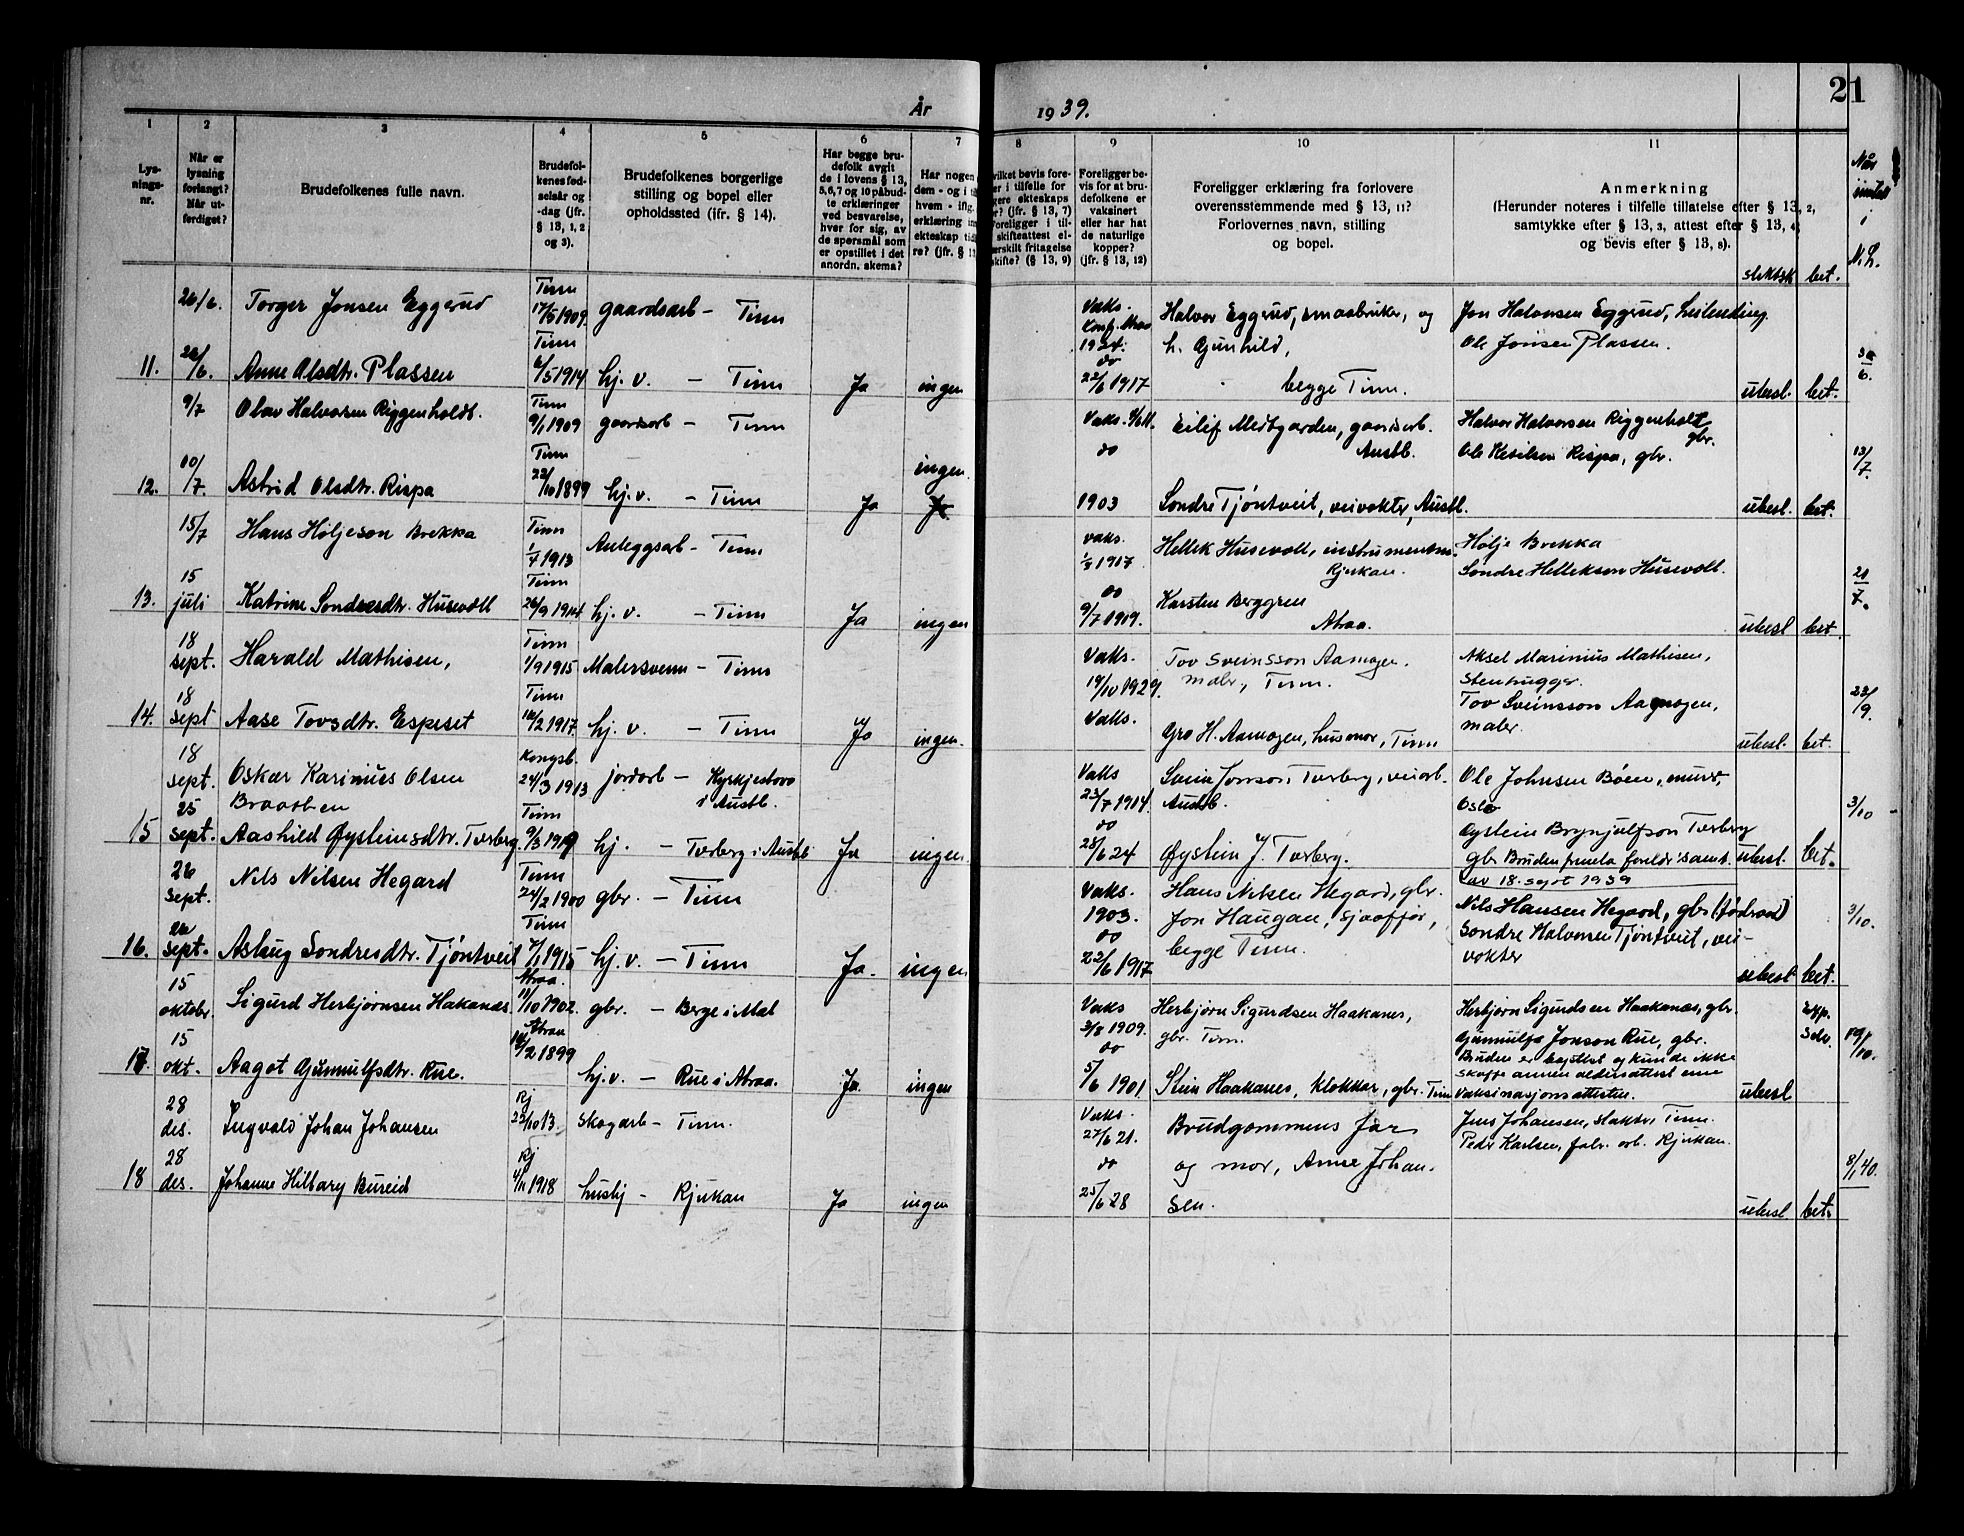 År 1939.
21
1 2 3 4 5 6 7 8 9 10 11
Lys-
nings-
nr.
Når er
lysning
forlangt?
Når ut-
ferdiget?
Brudefolkenes fulle navn.
Brudefol-
kenes fød-
selsår og
-dag (jfr.
§ 13, 1, 2
og 3).
Brudefolkenes borgerlige
stilling og bopel eller
opholdssted (jfr. § 14).
Har begge bru-
defolk avgit
de i lovens § 13,
5,6,7 og 10 påbud-
te erklæringer
ved besvarelse,
hver for sig, av
de spørsmål som
er opstillet i det
anordn. skema?
Har nogen
dem - og i til
hvem - iflg.
erklæring in
ekteskap tid
re? (jfr. § 1
vilket bevis fore-
er i tilfelle for
gere ekteskaps
r? (jfr. § 13, 7)
Foreligger i til-
skifteattest el-
erskilt fritagelse
skifte? (§ 13, 9)
Foreligger be-
vis for at bru-
defolkene er
vaksinert
eller har hat
de naturlige
kopper?
(jfr. § 13, 12)
Foreligger erklæring fra forlovere
overensstemmende med § 13, 11?
Forlovernes navn, stilling
og bopel.
Anmerkning
(Herunder noteres i tilfelle tillatelse efter § 13, 2,
samtykke efter § 13, 3, attest efter § 13, 4
og bevis efter § 13, 8).
bet.
Når
i
N.L.
26/6. Torger Jonsen Eggerud Tinn 17/5 1909. gaardsarb - Tinn Vaks. 1924. Halvor Eggrud, smaabruker, og
h. Gunhild, Jon Halvorsen Eggrud, Leilending.
Ole Jonsen Plassen.
11. 26/6. Anne Olsdtr. Plassen Tinn 6/5 1914 hj. v. - Tinn Ja ingen do 22/6 1917 begge Tinn. ubesl. bet. 30/6.
9/7 Olav Halvorsen Riggenholdt. Tinn 9/1 1909 gaardsarb - Tinn Vaks. Eilif Medgarden, gaardsarb.
Austb. Halvor Halvorsen Riggenholt
gbr.
12. 10/7. Astrid Olsdtr. Rispa Tinn 23/10 1899 hj. v. - Tinn Ja ingen do 1903 Sondre Tjöntveit, veivokter, Austb. Ole Ketilsen Rispa, gbr. ubesl. bet. 13/7.
15/7 Hans Höljeson Brekka Tinn 1/4 1913 Anleggsarb - Tinn vaks. 1917 Hellek Husevoll, instrumentm.
Rjukan. Hölje Brekka
Sondre Hellekson Husevoll.
13. 15 juli Katrine Sondresdtr. Husevoll Tinn 26/9 1914 hj. v. - Tinn Ja ingen do 9/7 1919. Karsten Berggren
Atraa. ubesl bet. 21/7.
18 sept. Harald Mathisen, Tinn 1/9 1915 Malersvenn - Tinn Vaks. 19/10 1929. Tov Sveinsson Aamogen.
maler, Tinn. Aksel Marinius Mathisen,
Stenhugger.
14. 18 sept Aase Tovsdtr. Espeset Tinn 16/2 1917. hj. v. - Tinn Ja ingen. Vaks. Gro H. Aamogen, husmor, Tinn Tov Sveinsson Aamogen,
maler. ubesl. bet. 23/9.
18 sept. Oskar Karinius Olsen
Braathen Kongsb. 24/3 1913 jordarb - Kyrkjestovo
i Austb. Vaks 23/7 1914. Svein Jonson Torberg, veiarb.
Austb. Ole Johnsen Böen, murer,
Oslo
15 25 sept. Aashild Øysteinsdtr. Torberg Tinn 9/3 1919 hj. - Torberg i Austb Ja ingen. do 25/6 24 Øystein J. Torberg. Øystein Brynjulfson Torberg
gbr Bruden foreldr samt.
av 18. sept 1939 ubesl. bet. 3/10
26 sept. Nils Nilsen Hegard Tinn 24/2 1900 gbr. - Tinn Vaks. 1903. Hans Nilsen Hegard, gbr.
Jon Haugan, sjaaffør,
begge Tinn. Nils Hansen Hegard, gbr
16. 26 sept. Aslaug Sondresdtr. Tjöntveit Tinn 7/1 1915 hj. v. - Tinn Ja. ingen do 22/6 1917 Sondre Halvorsen Tjöntveit, vei-
vokter ubesl bet. 3/10.
15 oktober. Sigurd Herbjørnsen Hakanæs Atraa. 11/10 1902. gbr. - Berge i Mæl Vaks 3/8 1909. Herbjørn Sigurdsen Haakanes,
gbr. Tinn. Herbjørn Sigurdsen Haakanæs, gbr.
17. 15 okt. Aagot Gunnulfsdtr. Rue. Atraa 16/2 1899 hj. v. - Rue i Atraa. Ja ingen do 5/6 1901. Stein Haakanes, klokkar, gbr. Tinn Gunnulf Jonson Rue, gbr.
Bruden er bosatt og kunde ikke
skaffe annen aldersattest enn
Vaksinasjonsattesten. ubesl 19/10.
28 des. Ingvald Johan Johansen Rj 22/10 13. skogarb - Tinn. Vaks. 27/6 21. Brudgommens far
og mor, Anne Johan-
sen. Jens Johansen, slakter, Tinn.
Peder Karlsen, fabr. arb. Rjukan.
18 28 des. Johanne Hilbary Bureid Rj 4/11 1918 hushj - Rjukan Ja ingen do 25/6 28 ubesl. bet. 8/1 40.